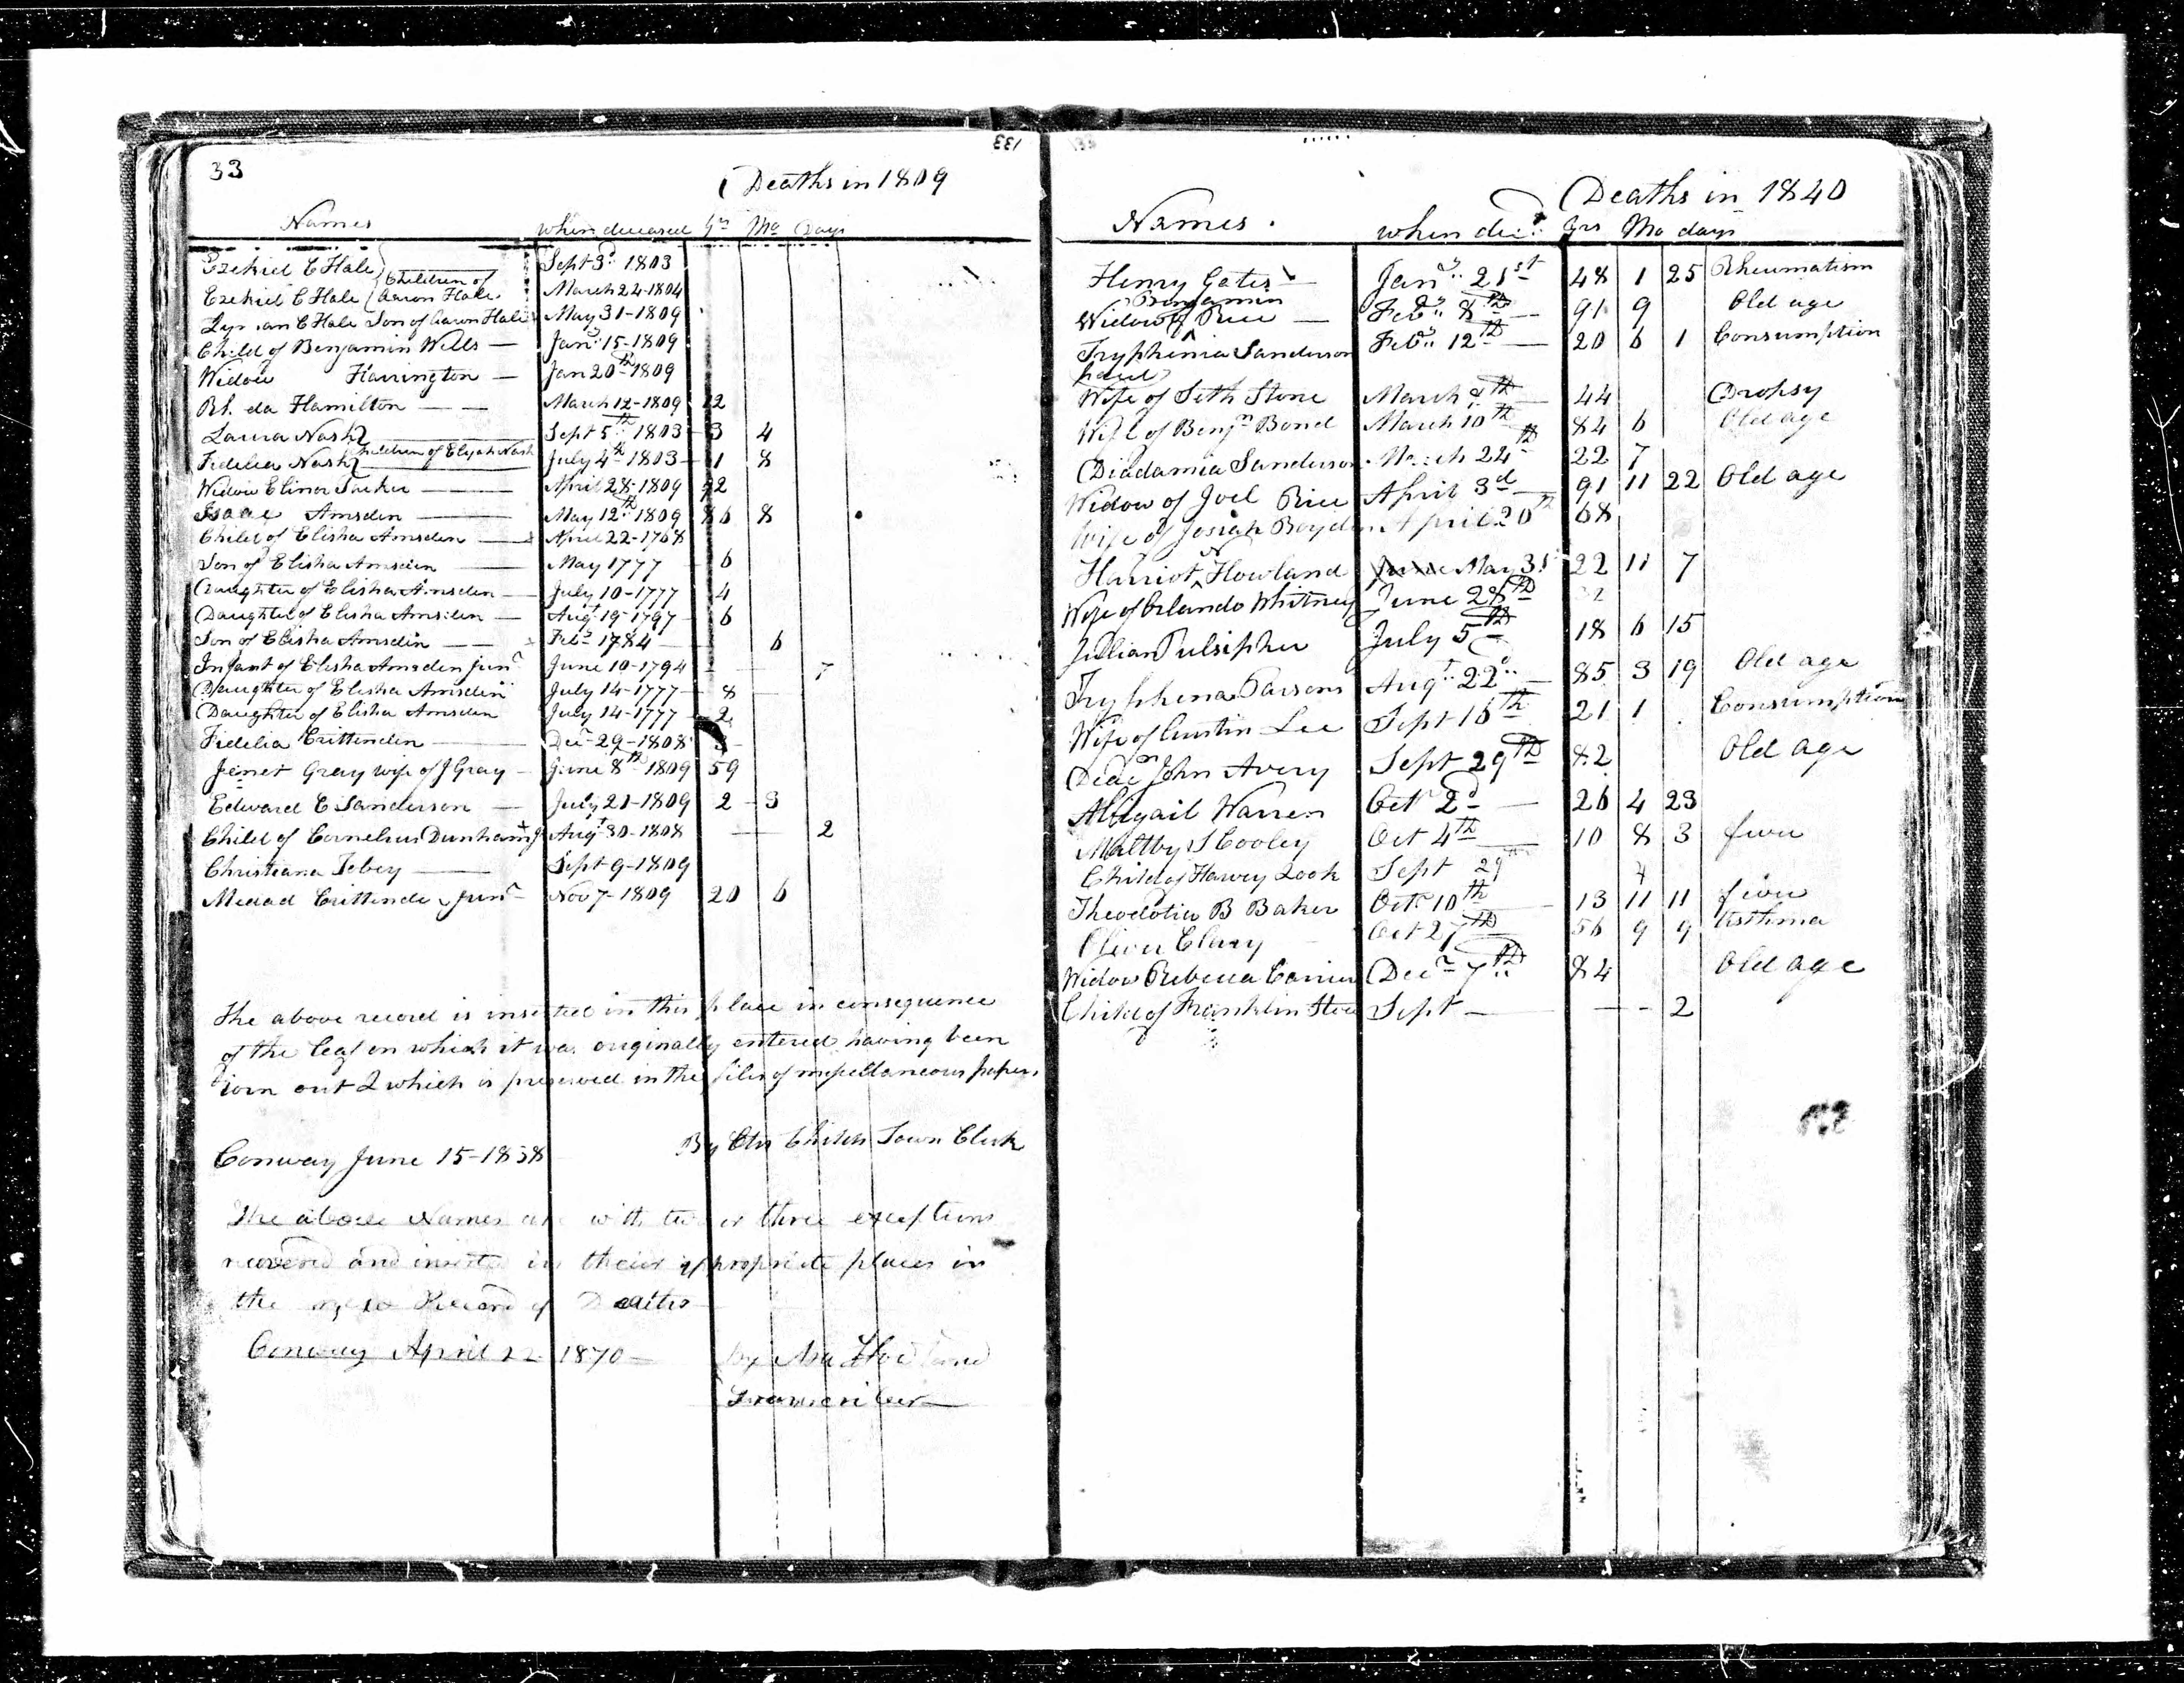 33
133
Deaths in 1809
Names when deceased Yrs Mo Days
Ezekiel C Hale Sept 3d 1803
Children of Aaron Hale
Ezekiel C Hale March 24-1804
C Hale Son of Aaron Hale May 31-1809
Child of Benjamin Wells — Jany 15-1809
Widow Harrington — Jan 20th 1809
Rhoda Hamilton — — March 12-1809
Laura Nash Sept 5th 1803 3 4
Children of Elijah Nash
Fidelia Nash July 4th 1803 1 8
Widow Elinor Tucker — April 28-1809
Isaac Amsden — May 12th 1809 86 8
Child of Elisha Amsden — April 22-1768
Son of Elisha Amsden — May 1777 6
Daughter of Elisha Amsden — July 10-1777 4
Daughter of Elisha Amsden Augt 19-1797 6
Son of Elisha Amsden — — Feby 1784 — 6
Infant of Elisha Amsden junr June 10-1794 — — 7
Daughter of Elisha Amsden July 14-1777 — 8 —
Daughter of Elisha Amsden July 14-1777 2
Fidelia Crittenden — Decr 29-1808
Jenet Gray wife of J Gray — June 8th 1809 59
Edward C Sanderson — July 21-1809 2 - 3
Child of Cornelius Dunham Augt 30-1808 — — 2
Christiana Tobey — Sept 9-1809
Medad Crittenden junr Nov 7-1809 20 6
The above record is inserted in this place in consequence
of the leaf on which it was originally entered having been
torn out & which is preserved in the files of miscellaneous papers.
Conway June 15-1838 By Otis Childs Town Clerk
The above Names are with two or three exceptions
and inserted in their appropriate places in
the new Record of Deaths
Conway April 22 1870 — by Asa Howland
Transcriber
Deaths in 1840
Names. when decd yrs Mo days
Henry Gates — Jany 21st 48 1 25 Rheumatism
Benjamin
Widow of Rice — Feby 8th — 91 9 Old age
Tryphenia Sanderson Feby 12th — 20 6 1 Consumption
Wife of Seth Stone March 8th — 44 Dropsy
Wife of Benjn Bond March 10th 84 6 Old age
Diadamia Sanderson March 24th 22 7
Widow of Joel Rice April 3d — 91 11 22 Old age
Wife of Josiah Boyden April 20th 68
Harriot N Howland May 31 22 11 7
Wife of Orlando Whitney June 28th
Jillian Pulsipher July 5th 18 6 15
Tryphena Parsons Augt 22d — 85 3 19 Old age
Wife of Austin Lee Sept 16th 21 1 Consumption
Deacn John Avery Sept 29th 82 Old age
Abigail Warren Octr 2d — 26 4 23
Maltby S Cooley Oct 4th — 10 8 3 fever
Child of Harvey Look Sept 29th 4
Theodotia B Baker Octr 10th — 13 11 11 fever
Oliver Clary Oct 27th 56 9 9 Asthma
Widow Rebecca Carrier Decr 7th 84 Old age
Child of Franklin Sept — — - 2